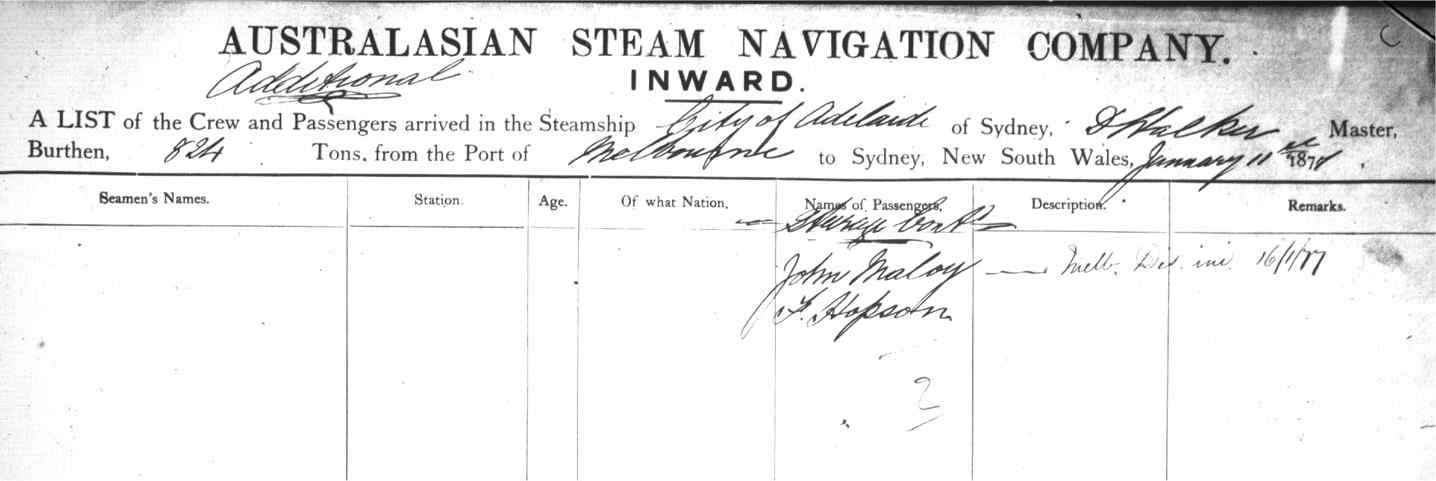 AUSTRALASIAN STEAM NAVIGATION COMPANY.
Additional
INWARD.
A LIST of the Crew and Passengers arrived in the Steamship City of Adelaide of Sydney, D Walker Master,
Burthen, 824 Tons, from the Port of Melbourne to Sydney, New South Wales, January 11 187
Seamen's Names. Station. Age. Of what Nation. Names of Passengers. Description. Remarks.
Steerage Contd
John Maloy — Melb. 16/1/77
F. Hopson
2